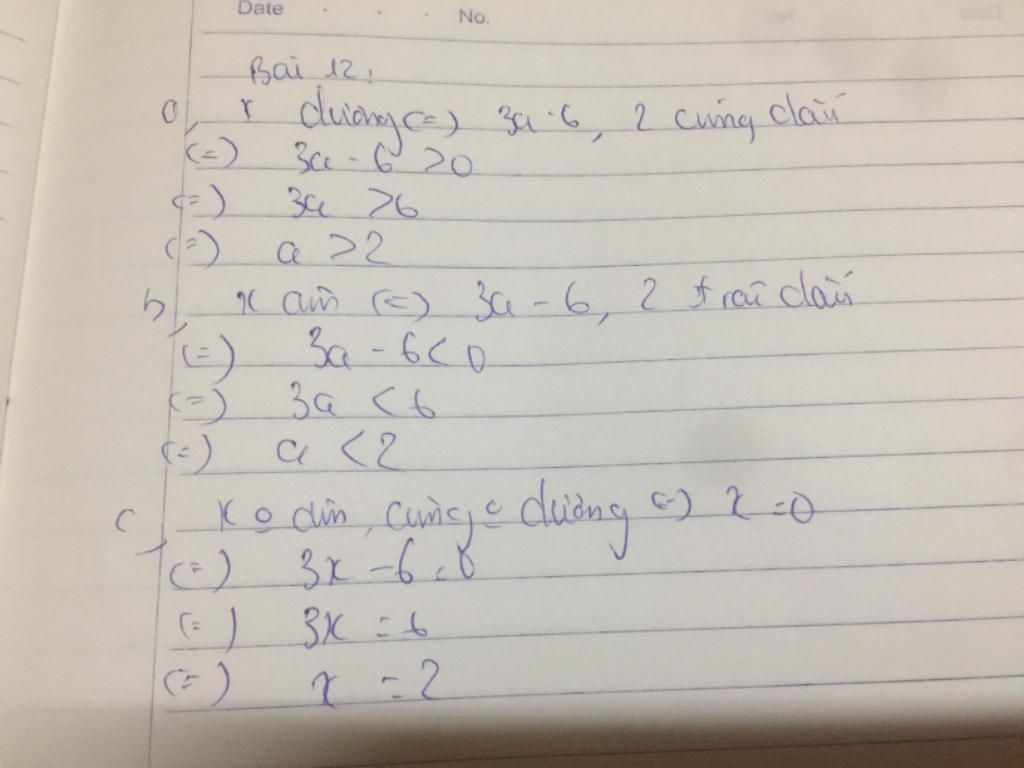 Date . . . No.
Bài 12:
a, x dương (=) 3a - 6, 2 cùng dấu
(=) 3a - 6 > 0
(=) 3a > 6
(=) a > 2
b, x âm (=) 3a - 6, 2 trái dấu
(=) 3a - 6 < 0
(=) 3a < 6
(=) a < 2
c, x o âm, cũng o dương (=) x = 0
(=) 3x - 6 = 0
(=) 3x = 6
(=) x = 2